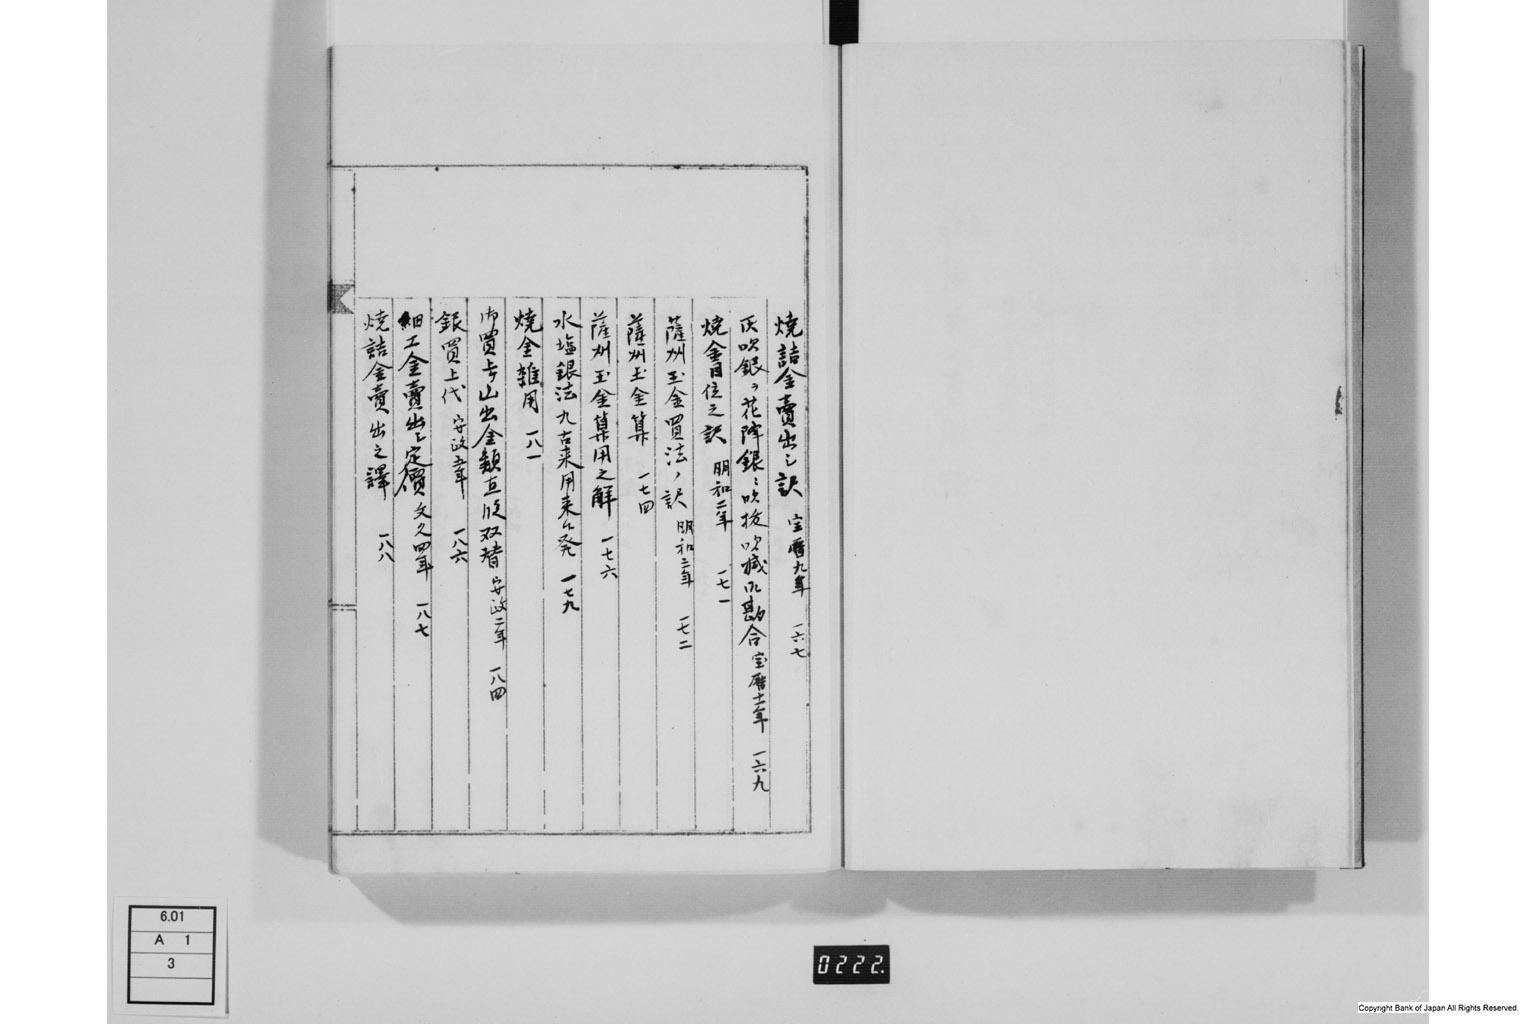 焼詰金賣出之訳 宝暦九年 一六七
灰吹銀々花降銀ニ吹抜吹減御勘合 宝暦十一年 一六九
焼金目位之訳 明和二年 一七一
薩州玉金買法ノ訳 明和二年 一七二
薩州玉金算 一七四
薩州玉金集用之解 一七六
水塩銀法 九古来用来候発 一七九
焼金雑用 一八一
御買上山出金類直段双替 安政二年 一八四
銀買上代 安政五年 一八六
細工金賣出之定價 文久四年 一八七
焼詰金賣出之譯 一八八
6.01
A 1
3
0222.
Copyright Bank of Japan All Rights Reserved.